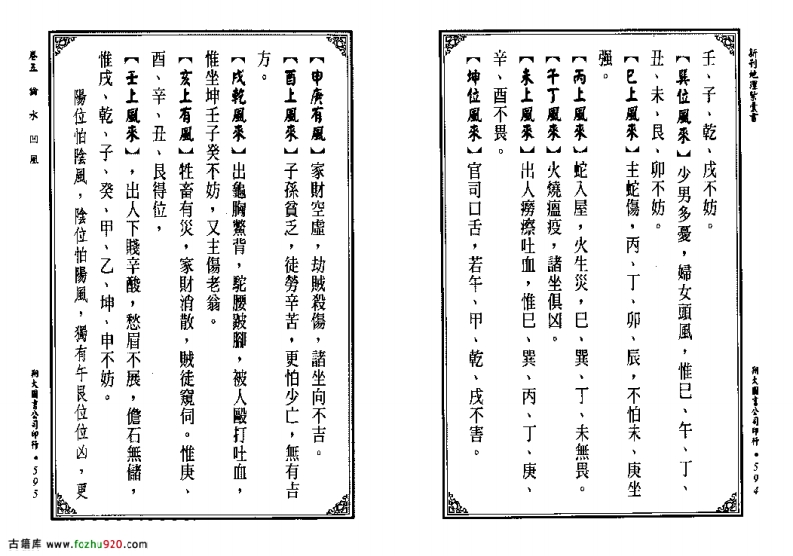 新刊地理紫囊書
壬、子、乾、戌不妨。
【巽位風來】少男多憂，婦女頭風，惟巳、午、丁、
丑、未、艮、卯不妨。
【巳上風來】主蛇傷，丙、丁、卯、辰，不怕未、庚坐
強。
【丙上風來】蛇入屋，火生災，巳、巽、丁、未無畏。
【午丁風來】火燒瘟疫，諸坐俱凶。
【未上風來】出人癆瘵吐血，惟巳、巽、丙、丁、庚、
辛、酉不畏。
【坤位風來】官司口舌，若午、甲、乾、戌不害。
翔大圖書公司印行•594
【申庚有風】家財空虛，劫賊殺傷，諸坐向不吉。
【酉上風來】子孫貧乏，徒勞辛苦，更怕少亡，無有吉
方。
【戌乾風來】出龜胸鱉背，駝腰跛腳，被人毆打吐血，
惟坐坤壬子癸不妨，又主傷老翁。
【亥上有風】牲畜有災，家財消散，賊徒窺伺。惟庚、
酉、辛、丑、艮得位，
【壬上風來】，出人下賤辛酸，愁眉不展，儋石無儲，
惟戌、乾、子、癸、甲、乙、坤、申不妨。
陽位怕陰風，陰位怕陽風，獨有午艮位位凶，更
卷五 論水凹風
翔大圖書公司印行•595
古籍库 www.fczhu920.com